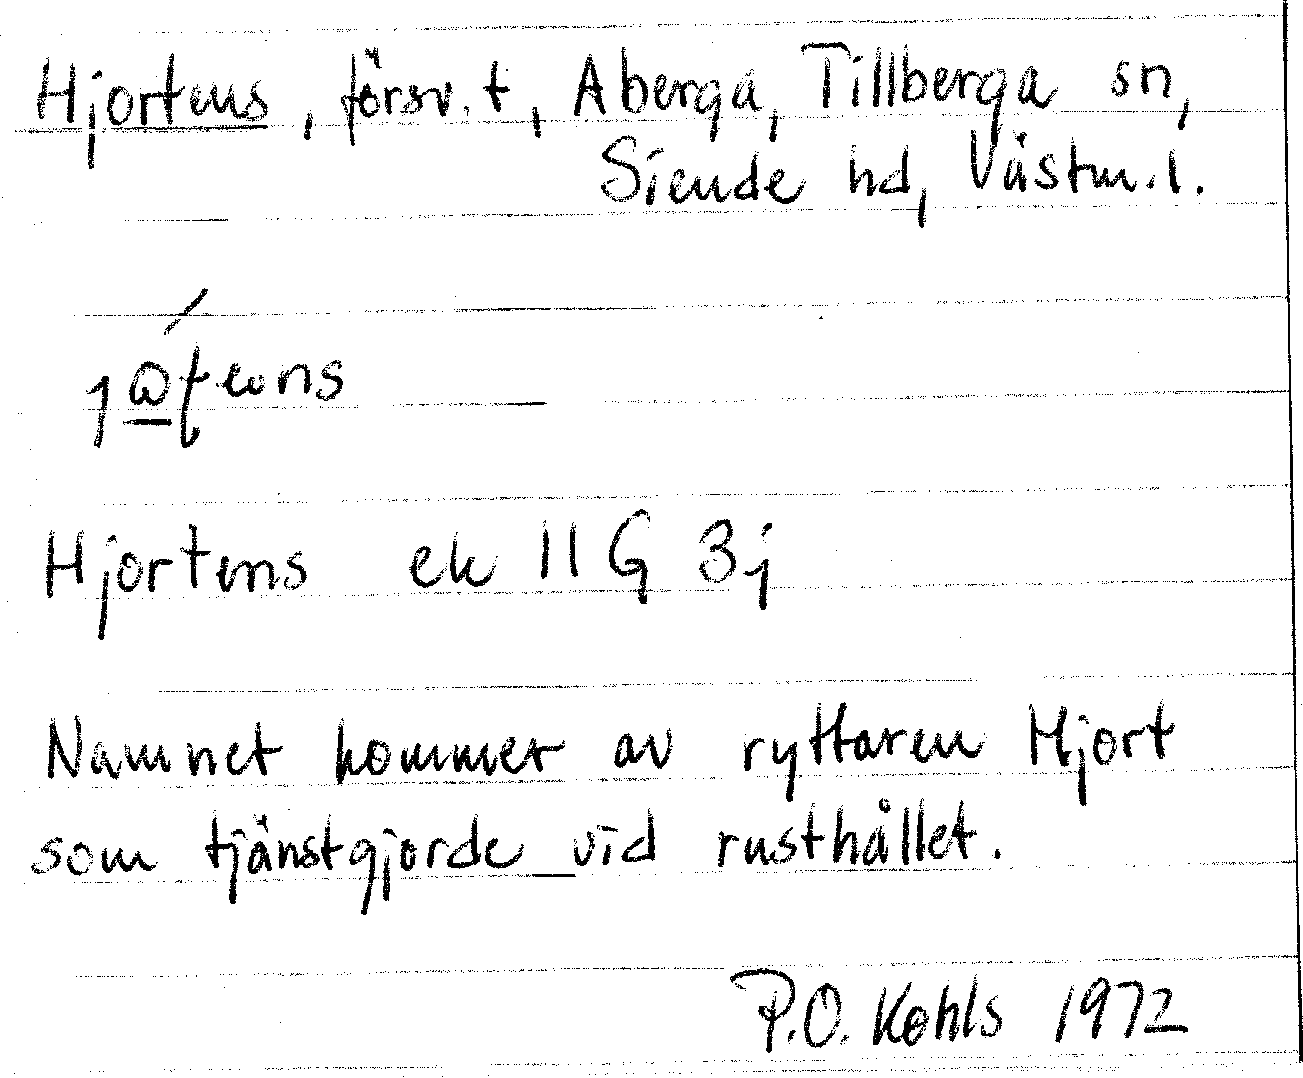 Hjortens, försv. t, Aberga, Tillberga sn,
Siende hd, Västm.l.
Hjortens ek 11 G 3j
Namnet kommer av ryttaren Hjort
som tjänstgjorde vid rusthållet.
P.O. Kohls 1972